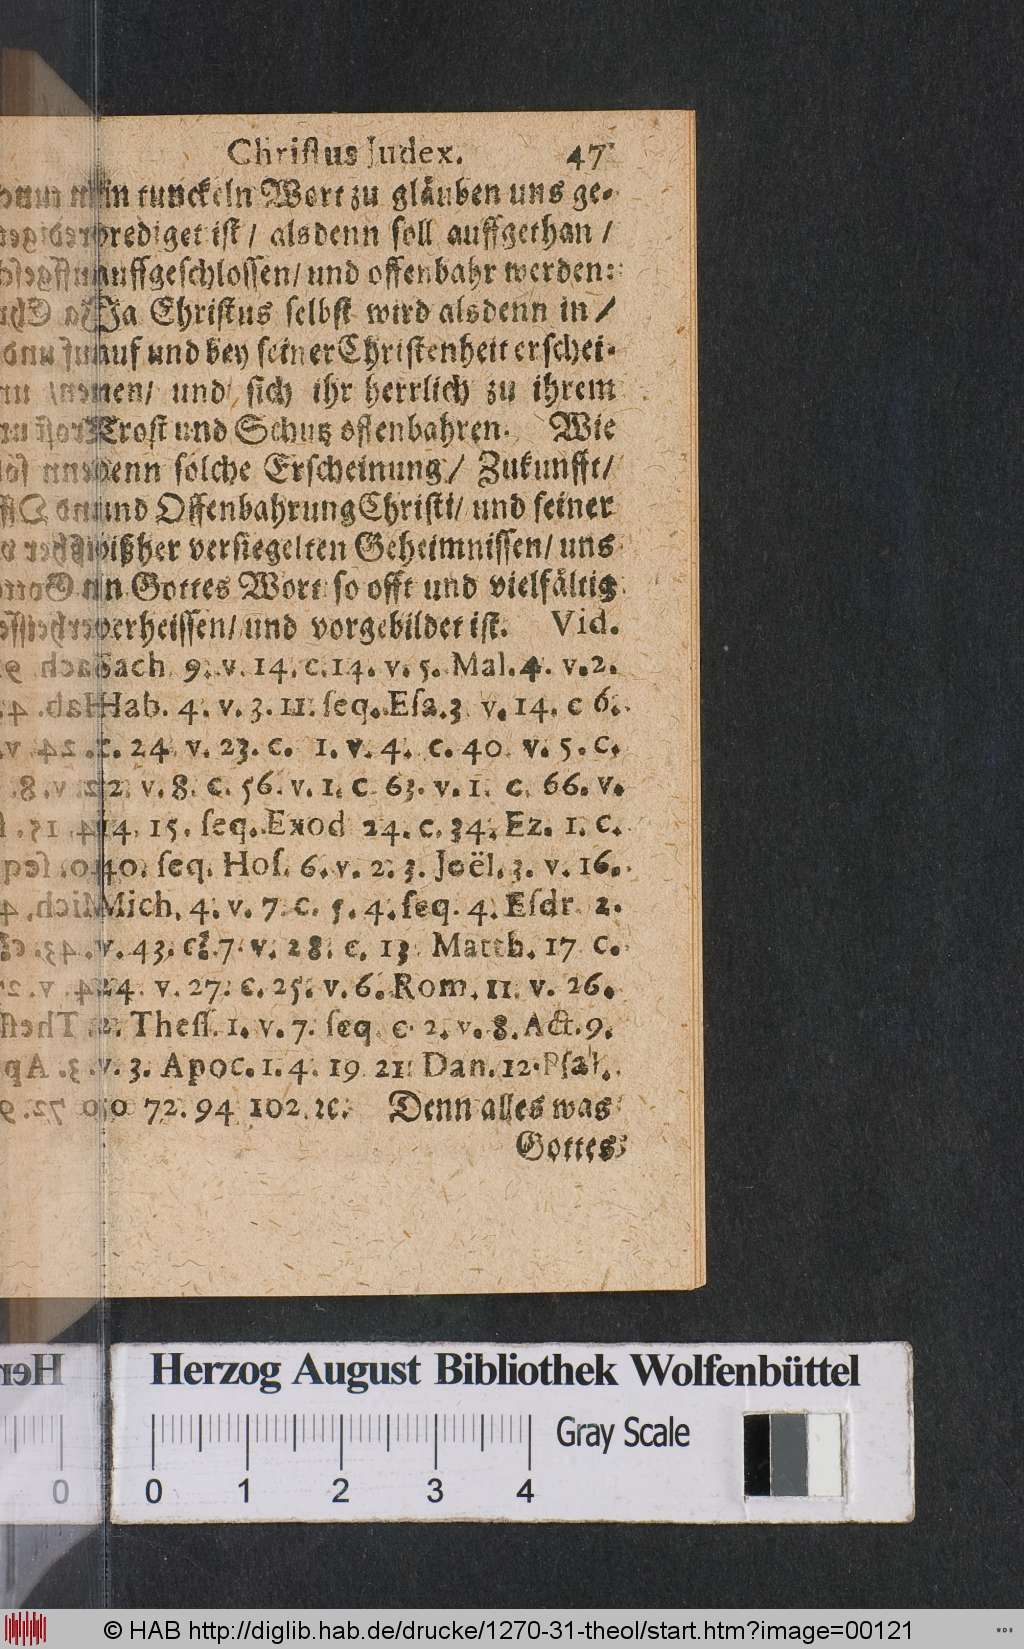 Christus Judex. 47
in tunckeln Wort zu gläuben uns ge-
prediget ist / alsdenn soll auffgethan /
auffgeschlossen / und offenbahr werden:
Ja Christus selbst wird alsdenn in /
auf und bey seiner Christenheit erschei-
nen / und sich ihr herrlich zu ihrem
Trost und Schutz offenbahren. Wie
denn solche Erscheinung / Zukunfft /
und Offenbahrung Christi / und seiner
bißher versiegelten Geheimnissen / uns
in Gottes Wort so offt und vielfältig
verheissen / und vorgebildet ist. Vid.
Sach. 9. v. 14. c. 14. v. 5. Mal. 4. v. 2.
Hab. 4. v. 3. 11. seq. Esa. 3 v. 14. c 6.
c. 24 v. 23. c. 1. v. 4. c. 40 v. 5. c.
2. v. 8. c. 56. v. 1. c 63. v. 1. c. 66. v.
14. 15. seq. Exod 24. c. 34. Ez. 1. c.
40. seq. Hos. 6. v. 2. 3. Joël. 3. v. 16.
Mich. 4. v. 7. c. 5. 4. seq. 4. Esdr. 2.
v. 43. c. 7. v. 28. c. 13. Matth. 17 c.
24. v. 27. c. 25. v. 6. Rom. 11. v. 26.
2. Thess. 1. v. 7. seq. c. 2. v. 8. Act. 9.
v. 3. Apoc. 1. 4. 19 21. Dan. 12. Psal.
0 72. 94 102. ꝛc. Denn alles was
Gottes
Herzog August Bibliothek Wolfenbüttel
Gray Scale
0 1 2 3 4
© HAB http://diglib.hab.de/drucke/1270-31-theol/start.htm?image=00121